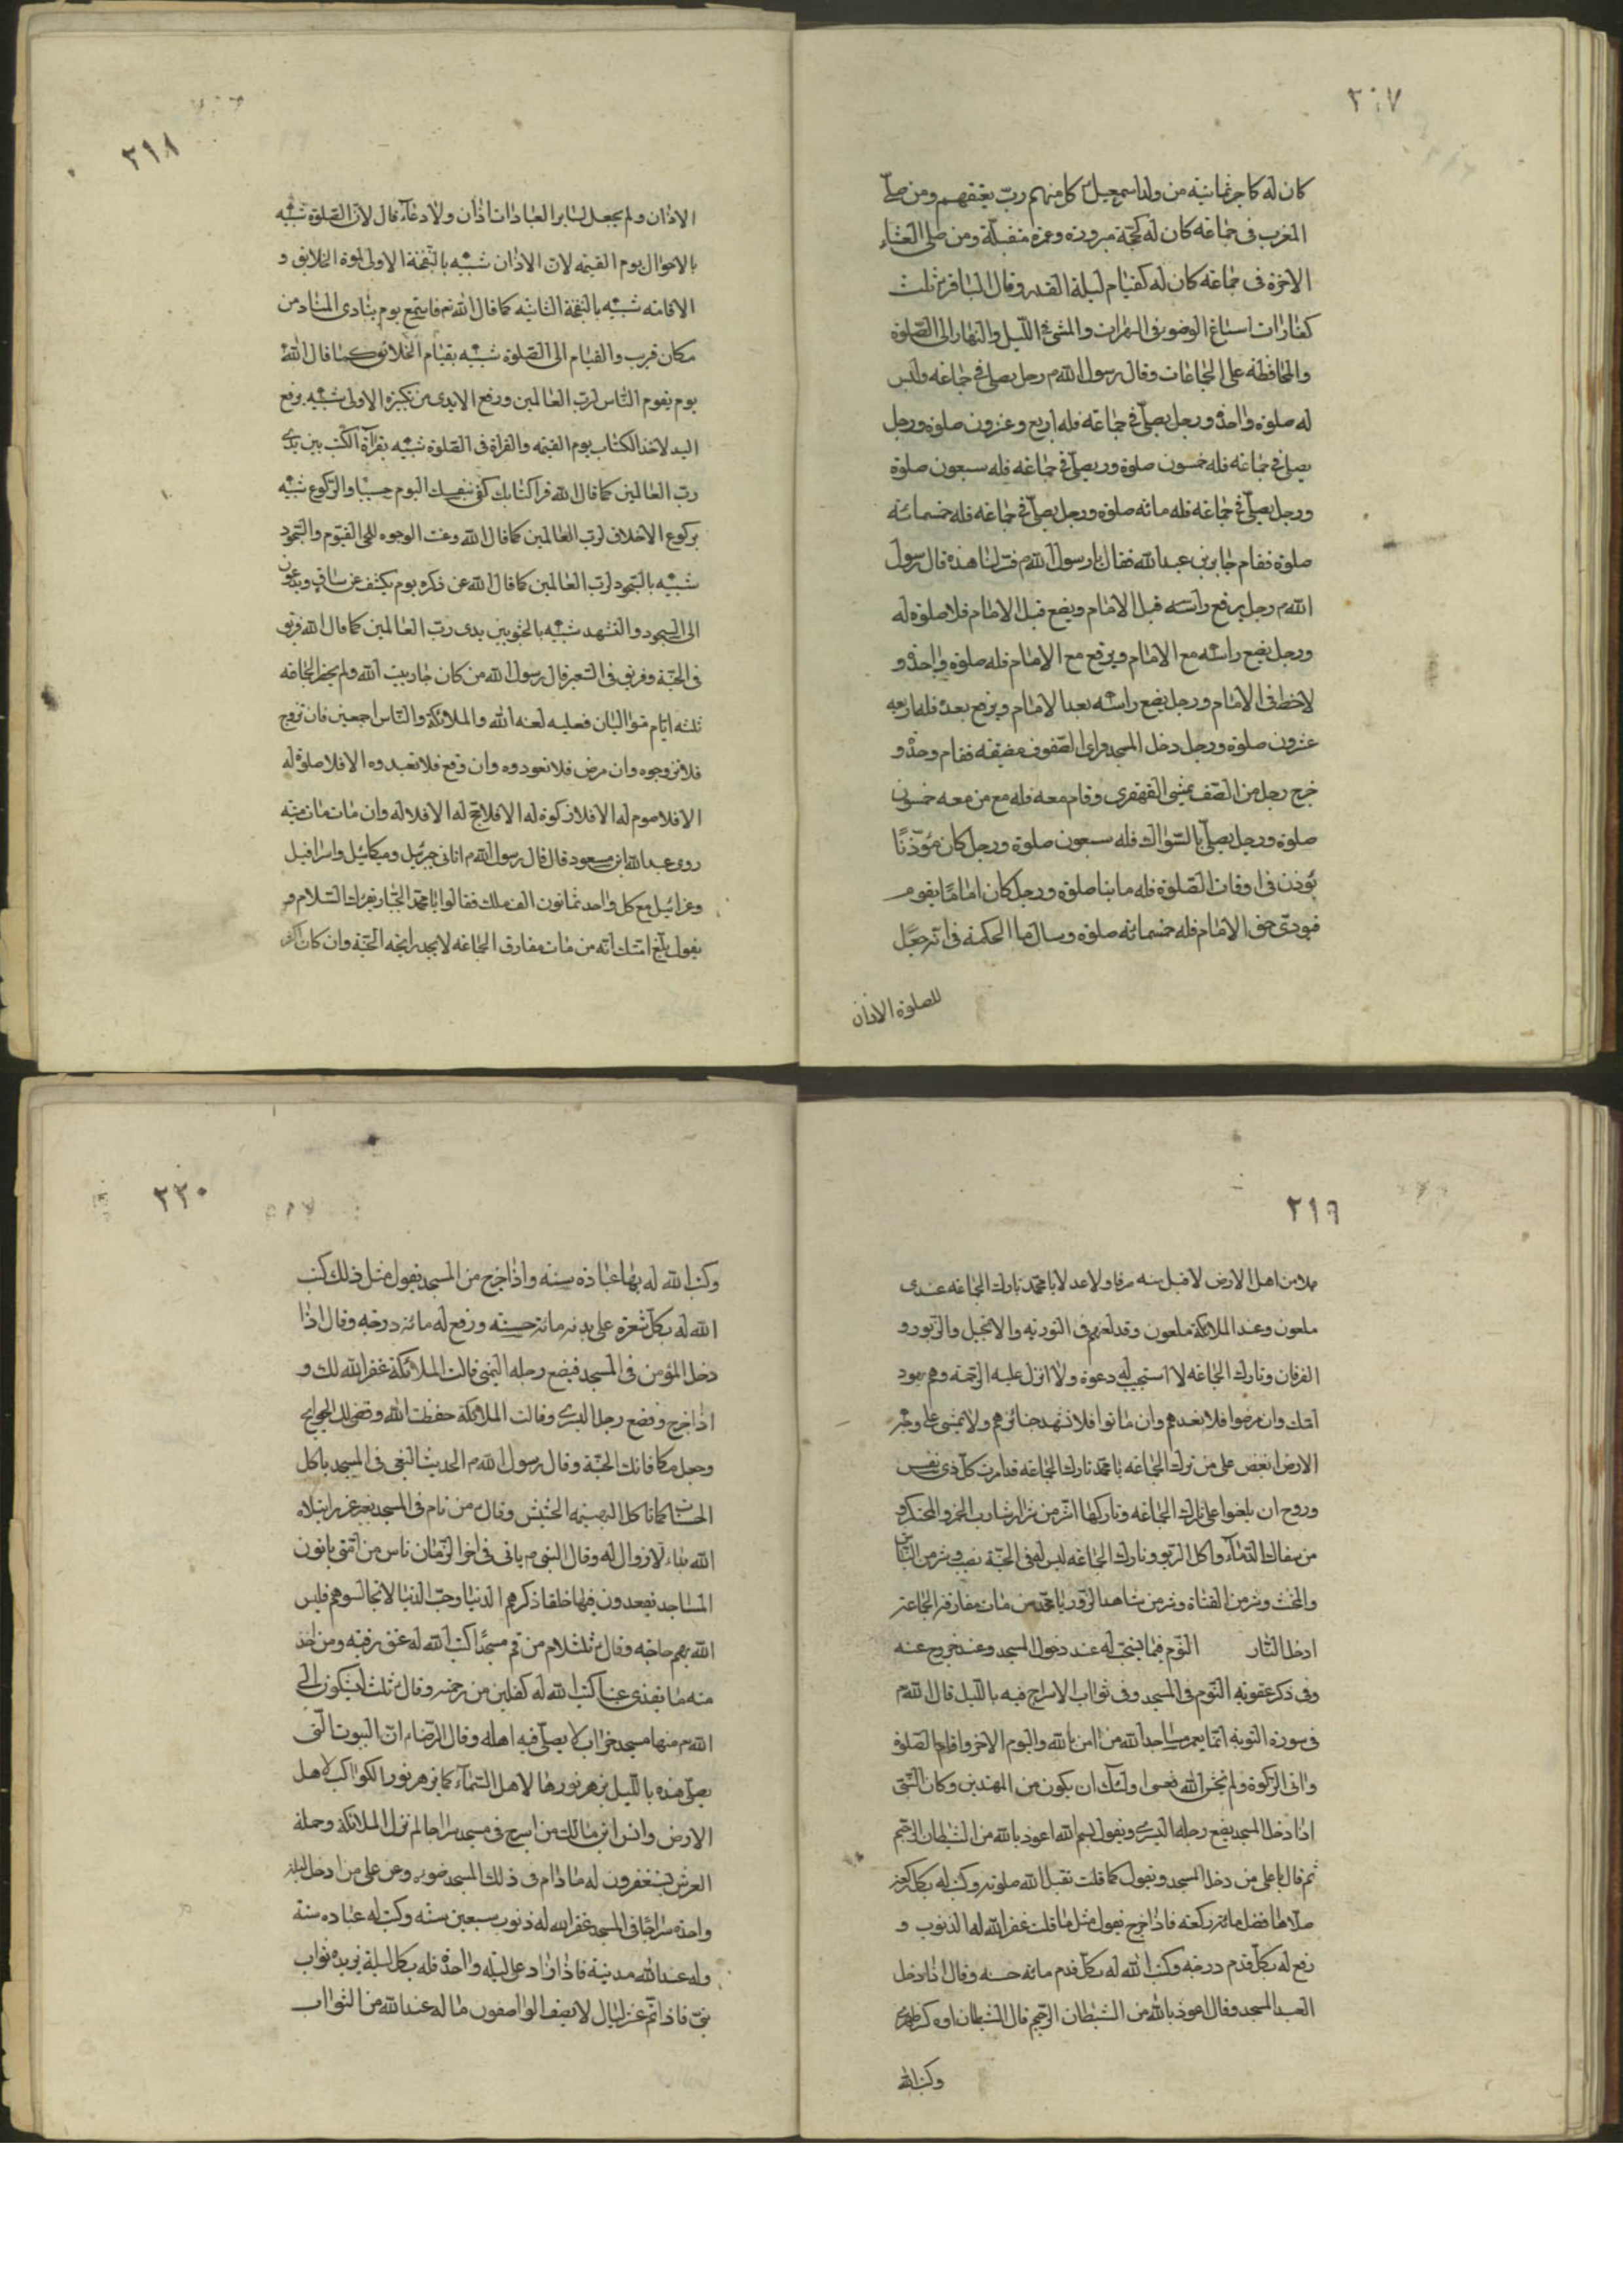 ٢١٧
كان له كاجر ثمانية من ولد اسمعيل كل منهم رب يعتقهم ومن صلى
المغرب فى جماعة كان له كحجة مبرورة وعمرة متقبلة ومن صلى العشاء
الاخرة فى جماعة كان له كقيام ليلة القدر وقال الباقر ثلث
كفارات اسباغ الوضوء فى السبرات والمشى فى الليل والنهار الى الصلوة
والمحافظة على الجماعات وقال رسول الله م رجل يصلى فى جماعة وليس
له صلوة واحدة ورجل يصلى فى جماعة فله اربع وعشرون صلوة ورجل
يصلى فى جماعة فله خمسون صلوة ور يصلى فى جماعة فله سبعون صلوة
ورجل يصلى فى جماعة فله مائة صلوة ورجل يصلى فى جماعة فله خمسمائة
صلوة فقام جابر بن عبد الله فقال يا رسول الله م فسر لنا هذه قال رسول
الله م رجل يرفع راسه قبل الامام ويضع قبل الامام فلا صلوة له
ورجل يضع راسه مع الامام ويرفع مع الامام فله صلوة واحدة و
لا حظ فى الامام ورجل يضع راسه بعد الامام ويرفع بعده فله اربعه
عشرون صلوة ورجل دخل المسجد وراى الصفوف مضيقة فقام وحده و
خرج رجل من الصف يمشى القهقرى وقام معه فله مع من معه خمسون
صلوة ورجل يصلى بالسواك فله سبعون صلوة ورجل كان مؤذنا
يؤذن فى اوقات الصلوة فله مايتا صلوة ورجل كان اماما يقوم
فيودى حق الامام فله خمسمائة صلوة وسال ما الحكمة فى انه جعل
للصلوة الاذان
٢١٨
الاذان ولم يجعل لساير العبادات اذان ولا دعاء قال لان الصلوة شبيه
بالاحوال يوم القيمه لان الاذان شبيه بالنفخة الاولى لموة الخلايق و
الاقامه شبيه بالنفخة الثانيه كما قال الله تم فاستمع يوم يناد المناد من
مكان قريب والقيام الى الصلوة شبيه بقيام الخلائق كما قال الله
يوم يقوم الناس لرب العالمين ورفع الايدى من تكبيره الاولى شبيه برفع
اليد لاخذ الكتاب يوم القيمه والقراة فى الصلوة شبيه بقراءة الكتب بين يدى
رب العالمين كما قال الله قرا كتابك كفى بنفسك اليوم حسيبا والركوع شبيه
بركوع الاخلاف لرب العالمين كما قال الله وعنت الوجوه للحى القيوم والسجود
شبيه بالسجود لرب العالمين كما قال الله عن ذكره يوم يكشف عن ساق ويدعون
الى السجود والتشهد شبيه بالجثو بين يدى رب العالمين كما قال الله فريق
فى الجنة وفريق فى السعير قال رسول الله من كان جار بيت الله ولم يحظر الجماعه
ثلثه ايام متواليان فعليه لعنه الله والملائكة والناس اجمعين فان تزوج
فلا تزوجوه وان مرض فلا تعودوه وان وقع فلا تعبدوه الا فلا صلوة له
الا فلا صوم له الا فلا زكوة له الا فلا حج له الا فلا له وان مات مات ميته
روى عبد الله ابن مسعود قال قال رسول الله م اتانى جبرئيل وميكائيل واسرافيل
وعزائيل مع كل واحد ثمانون الف ملك فقالوا يا محمد الجبار يقرئك السلام و
يقول بلغ امتك انه من مات مفارق الجماعه لا يجد رايحه الجنة وان كان اكثر
٢١٩
عملا من اهل الارض لا قبل منه صرفا ولا عدلا يا محمد تارك الجماعه عندى
ملعون وعند الملائكة ملعون وقد لعنهم فى التورية والانجيل والزبور و
الفرقان وتارك الجماعه لا استجيب له دعوة ولا انزل عليه الرحمة وهم يهود
امتك وان مرضوا فلا تعدهم وان ماتوا فلا تشهد جنائزهم ولا يمشى على وجه
الارض ابغض على من ترك الجماعه يا محمد تارك الجماعه قد امرت كل ذى نفس
وروح ان يلعنوا على تارك الجماعه وتاركها اشر من شارب الخمر والمحتكر و
من سفاك الدماء واكل الربو وتارك الجماعه ليس له فى الجنة نصيب وشر من النباش
والمخنث وشر من القتاة وشر من شاهد الزور يا محمد من مات مفارق الجماعة
ادخل النار النوم فيما يستحب له عند دخول المسجد وعند خروج عنه
وفى ذكر عقوبة النوم فى المسجد وفى ثواب الاسراج فيه بالليل قال الله م
فى سورة التوبة انما يعمر مساجد الله من امن بالله واليوم الاخر واقام الصلوة
واتى الزكوة ولم يخش الا الله فعسى اولئك ان يكون من المهتدين وكان النبى
اذا دخل المسجد يضع رجله اليسرى ويقول بسم الله اعوذ بالله من الشيطان الرجيم
ثم قال يا على من دخل المسجد ويقول كما قلت تقبل الله صلوته وكتب له بكل ركعة
صلاها فضل مائة ركعه فاذا خرج يقول مثل ما قلت غفر الله له الذنوب و
رفع له بكل قدم درجة وكتب الله له بكل قدم مائه حسنه وقال اذا دخل
العبد المسجد وقال اعوذ بالله من الشيطان الرجيم قال الشيطان اوه كسر ظهرى
وكتب الله
٢٢٠
وكتب الله له بها عبادة سنه واذا خرج من المسجد يقول مثل ذلك كتب
الله له بكل شعرة على بدنه مائة حسنه ورفع له مائة درجه وقال اذا
دخل المؤمن فى المسجد فيضع رجله اليمنى قالت الملائكة غفر الله لك و
اذا خرج وضع رجل اليسرى وقالت الملائكة حفظك الله وقضى لك الحوايج
وجعل مكافاتك الجنة وقال رسول الله م الحديث البغى فى المسجد ياكل
الحسنات كما تاكل البهيمة الحشيش وقال من نام فى المسجد بغير عذر ابتلاه
الله بداء لا زوال له وقال النبى م ياتى فى اخر الزمان ناس من امتى ياتون
المساجد فيقعدون فيها حلقا ذكرهم الدنيا وحب الدنيا لا تجالسوهم فليس
الله بهم حاجه وقال ثلثلام من قم مسجدا كتب الله له عتق رقبه ومن اخذ
منه ما يقذى عينا كتب الله له كفلين من رحمته وقال ثلث يشكون الى
الله م منها مسجد خراب لا يصلى فيه اهله وقال الرضا م ان البيوت التى
يصلى هذه بالليل يزهر نورها لاهل السماء كما يزهر نور الكواكب لاهل
الارض وانس ابن مالك من اسرج فى مسجد سراجا لم تزل الملائكة وحملة
العرش يستغفرون له ما دام فى ذلك المسجد ضوء وعن على من ادخل ليلة
واحدة سراجا فى المسجد غفر الله له ذنوب سبعين سنه وكتب له عباده سنة
وله عند الله مدينة فاذا زاد على ليلة واحدة فله بكل ليلة يزيد ثواب
نبى فاذا تم عشر ليال لا يصف الواصفون ما له عند الله من الثواب